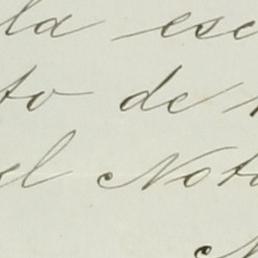 la esc
to de
el Not